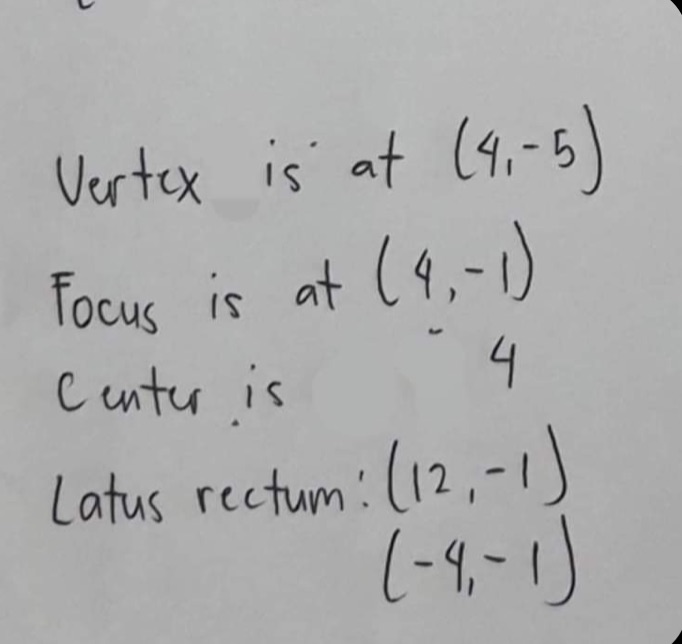 Vertex is at (4,-5)
Focus is at (4,-1)
Center is 4
Latus rectum: (12,-1)
(-4,-1)